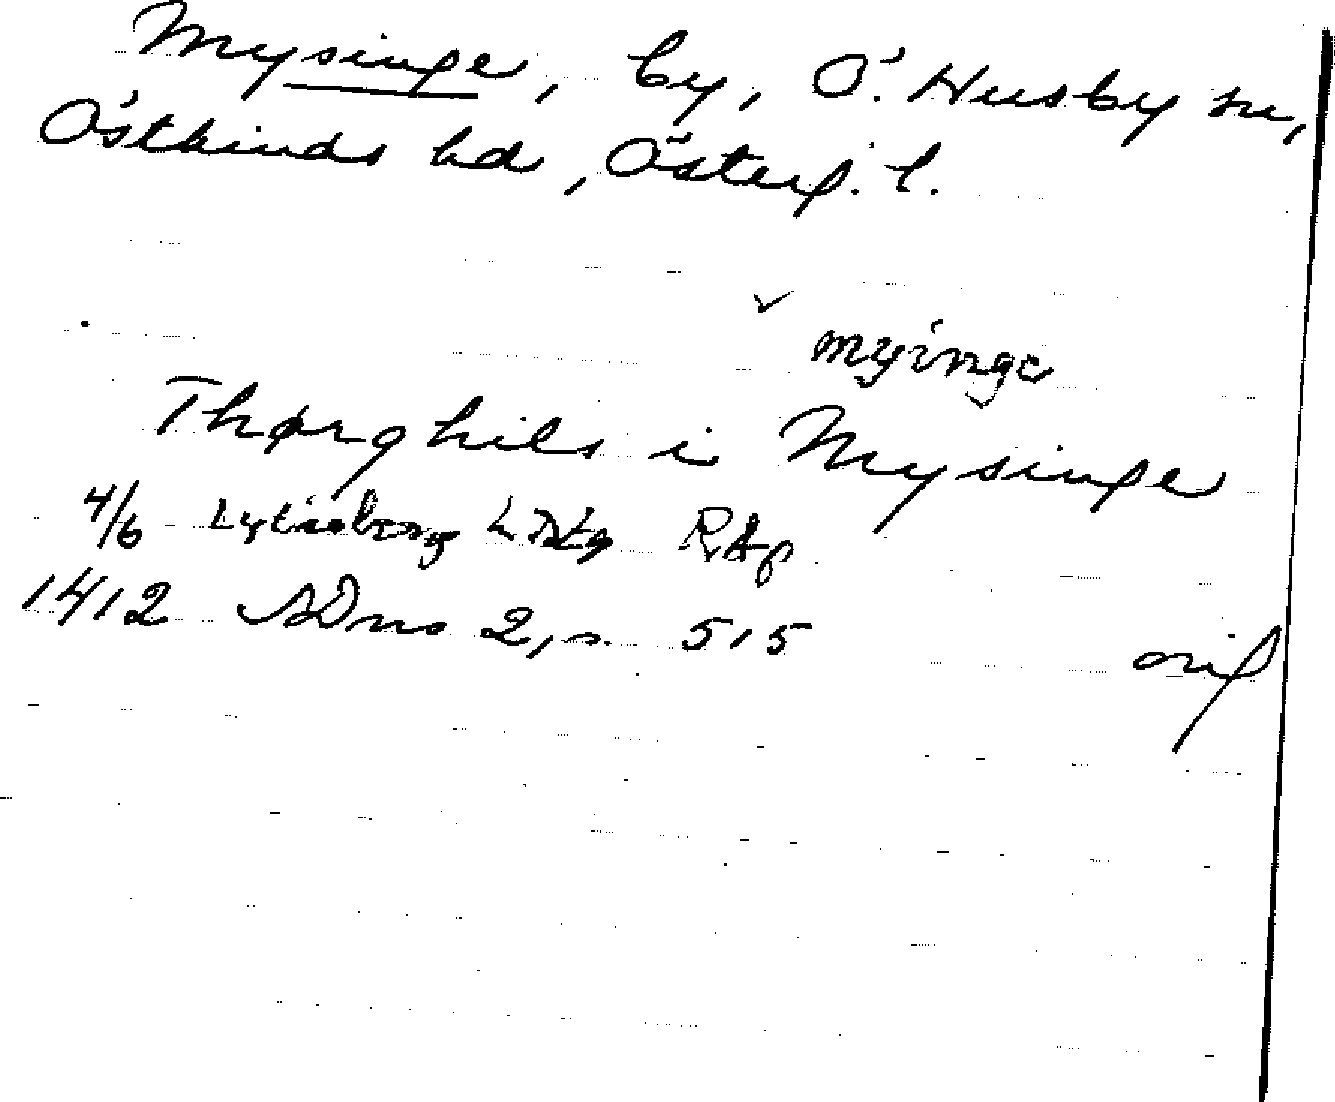 Mysinge, by, Ö. Husby sn,
Östkinds hd, Österg. l.
✓ myinge
Thørghils i Mysinge
4/6 RAp
1412 SDns 2, s. 515 orig